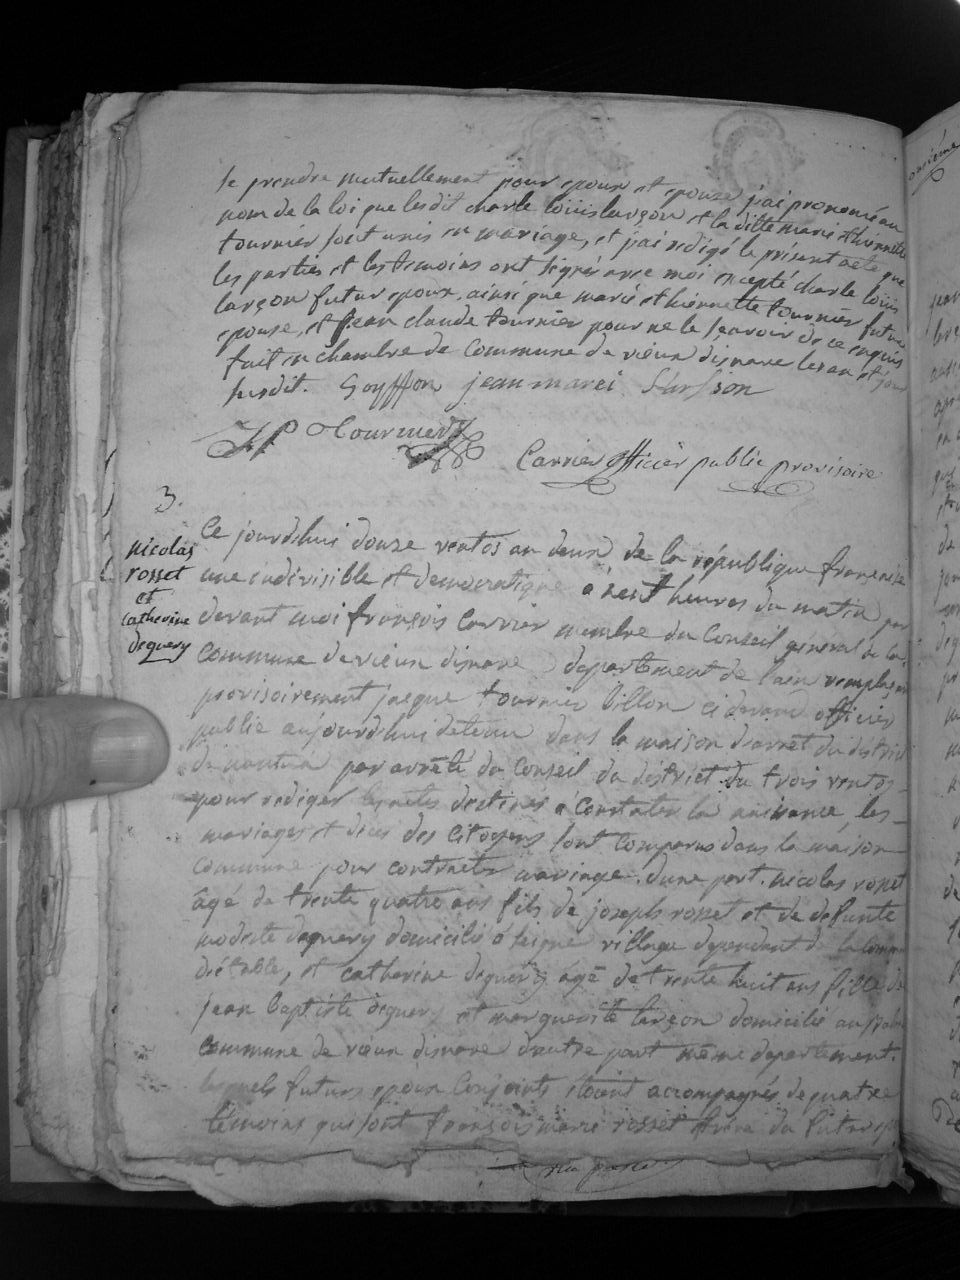 se prendre mutuellement pour epoux et epouse j'ai prononcé au
nom de la loi que lesdit charle loüis larçon et la ditte marie ethiennette
tournier sont unis en mariage, et j'ai redigé le présent acte que
les parties et les temoins ont signés avec moi excepté charle loüis
larçon futur epoux, ainsi que marie ethiennette tournier future
epouse, et jean claude tournier pour ne le sçavoir de ce enquis
fait en chambre de commune de vieux disnave les an et jour
susdit. Goyffon jean marei
JP Tournier
Carrier officier public provisoire
3.
nicolas
rosset
et
catherine
dequery
Ce jourd'hui douze ventos an deux de la république francaise
une indivisible et democratique a neuf heures du matin par
devant moi françois Carrier membre du Conseil général de la
commune de vieux disnave departement de l'ain remplaçant
provisoirement jacque tournier billon ci devant officier
public aujourdhui detenu dans la maison d'arrêt du district
de nantua par arrêté du Conseil du district du trois ventos
pour rediger les actes destinés a Constater la naissance, les
mariages et deces des Citoyens sont comparus dans la maison
Commune pour contracter mariage. dune part. nicolas rosset
âgé de trente quatre ans fils de joseph rosset et de defunte
modeste dequery domicilié a village dependant de la Commune
d'étable, et catherine dequery âgé de trente huit ans fille de
jean baptiste dequery et marguerite larçon domicilié au
commune de vieux disnave d'autre part même departement.
lesquels futurs epoux Conjoints étoient accompagnés de quatre
témoins qui sont françois marie rosset frère du futur